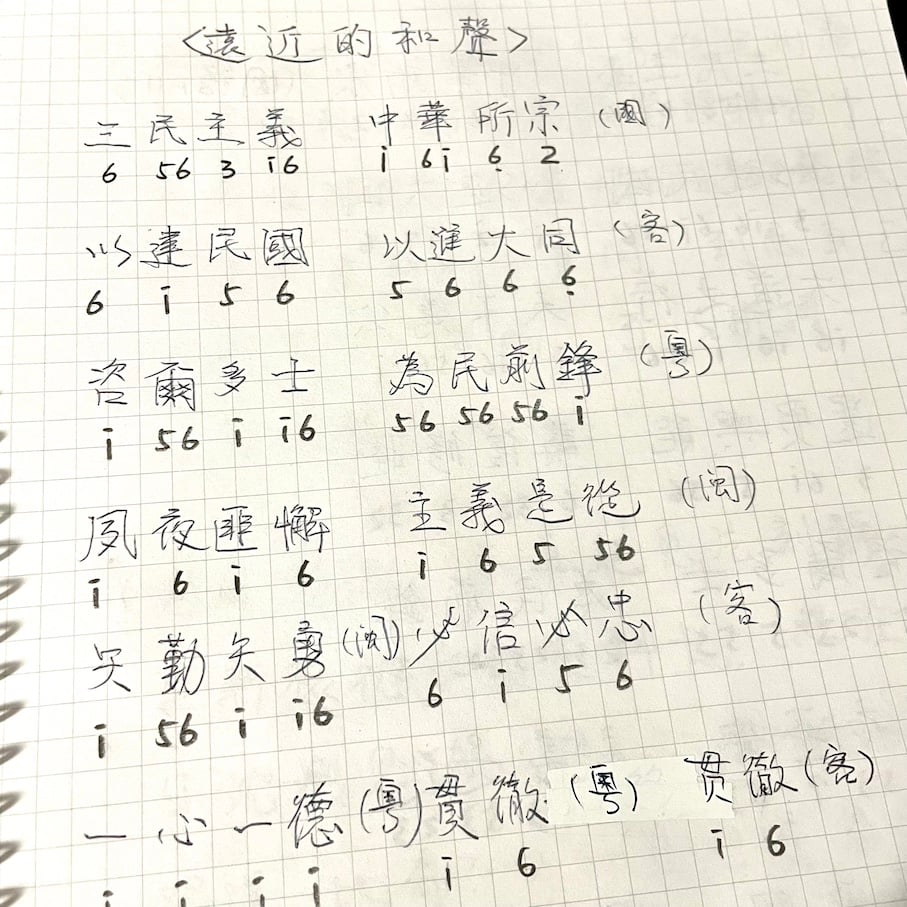 <遠近的和聲>
三民主義 中華所宗 (國)
6 56 3 i6 i 6i 6̣ 2
以建民國 以進大同 (客)
6 i 5 6 5 6 6 6̣
咨爾多士 為民前鋒 (粵)
i 56 i i6 56 56 56 i
夙夜匪懈 主義是從 (閩)
i 6 i 6 i 6 5 56
矢勤矢勇 (閩) 必信必忠 (客)
i 56 i i6 6 i 5 6
一心一德 (粵) 貫徹 (粵) 貫徹 (客)
i i i i i 6 i 6